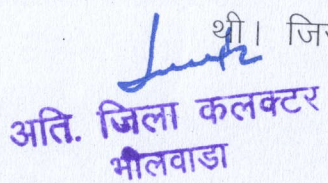 थी। जि
अति. जिला कलक्टर
भीलवाडा